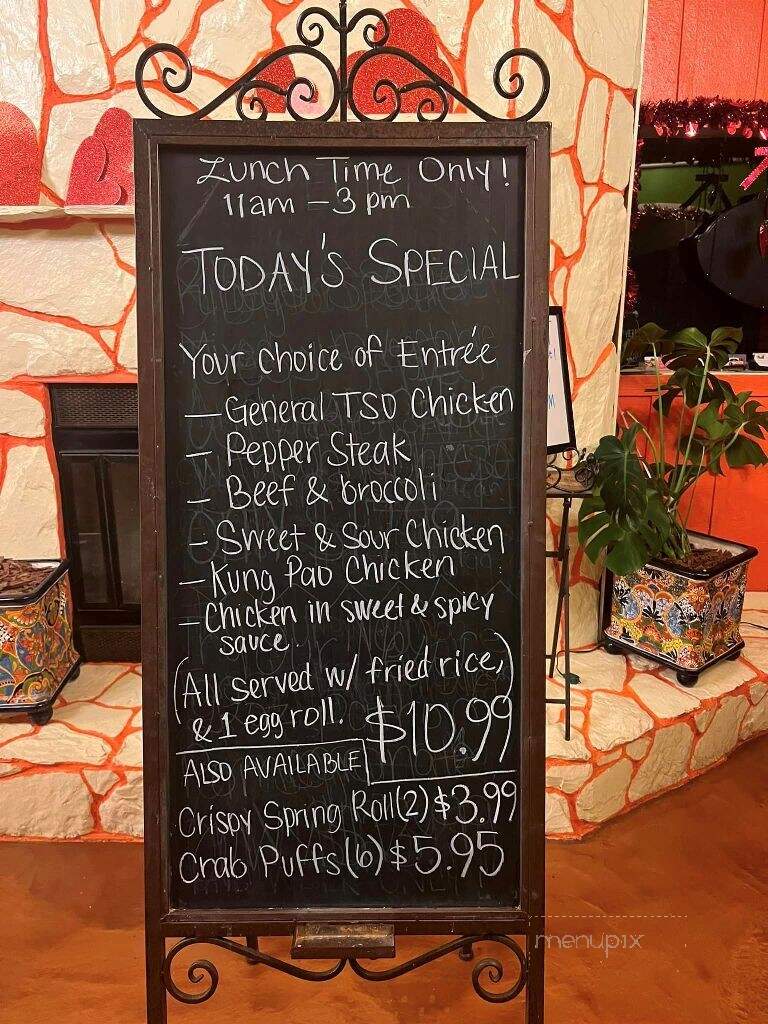 Lunch Time Only!
11am - 3 pm
TODAY'S SPECIAL
Your choice of Entrée
- General TSO Chicken
- Pepper Steak
- Beef & broccoli
- Sweet & Sour Chicken
- Kung Pao Chicken
- Chicken in sweet & spicy
sauce.
(All served w/ fried rice,)
& 1 egg roll.
$10.99
ALSO AVAILABLE
Crispy Spring Roll (2) $3.99
Crab Puffs (6) $5.95
menupix